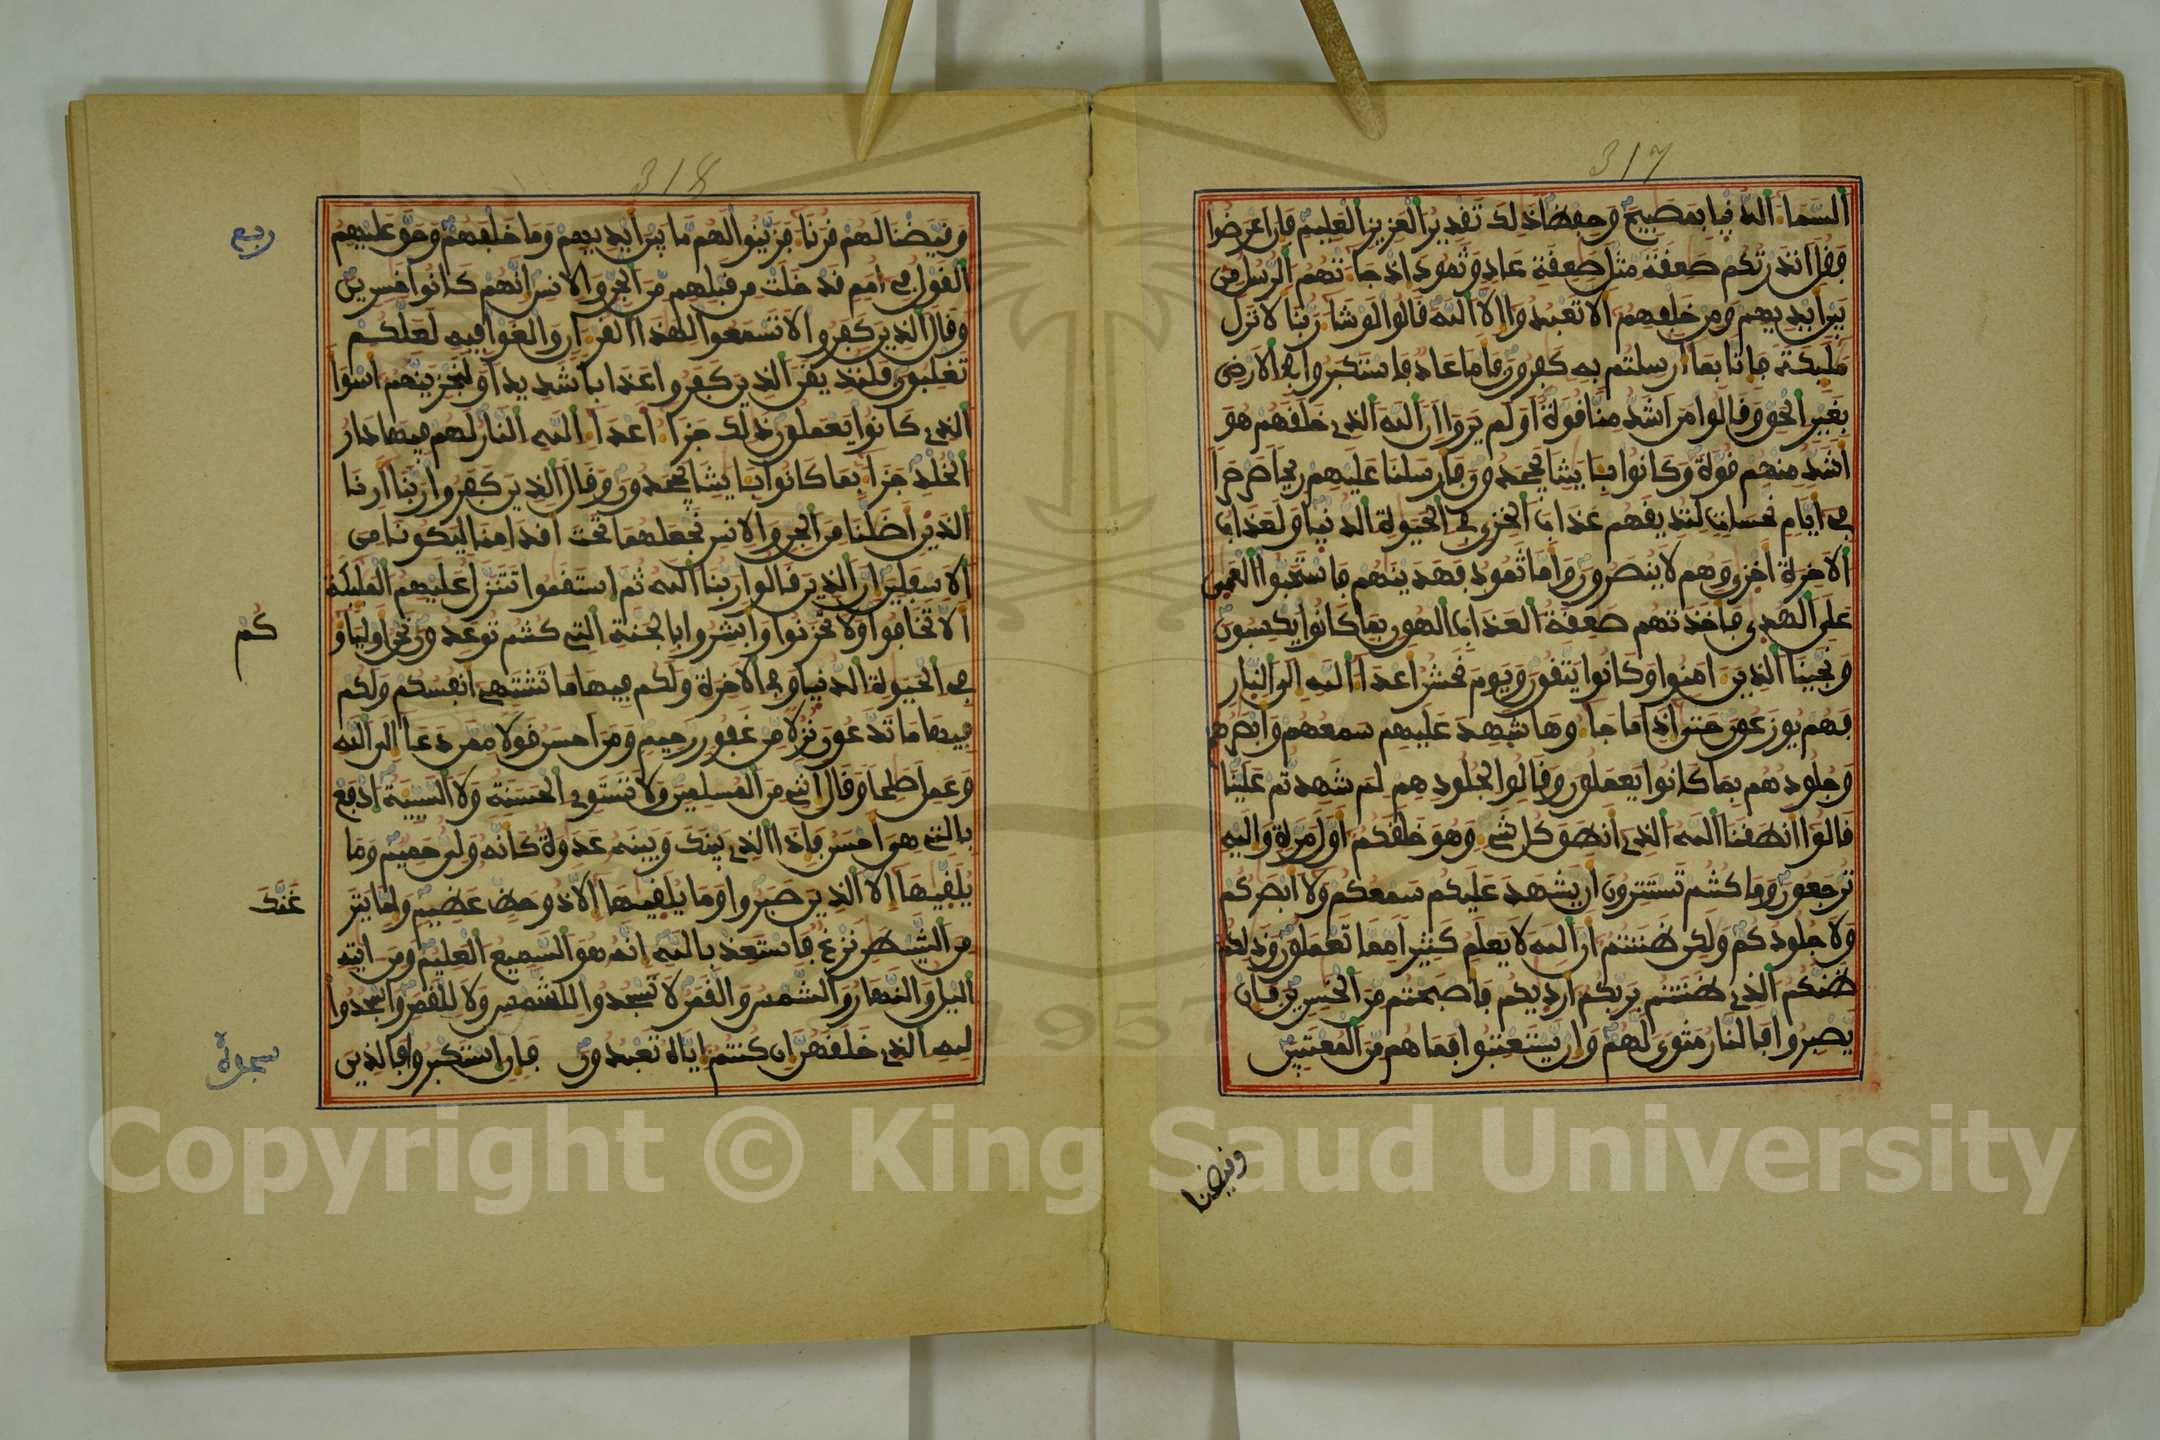 317
السما الدنيا بمصبيح وحفظا ذلك تقدير العزيز العليم فان اعرضوا
فقل انذرتكم صعقة مثل صعقة عاد وثمود اذ جاتهم الرسل من
بين ايديهم ومن خلفهم الا تعبدوا الا الله قالوا لو شا ربنا لانزل
مليكة فانا بما ارسلتم به كفرون فاما عاد فاستكبروا في الارض
بغير الحق وقالوا من اشد منا قوة اولم يروا ان الله الذي خلقهم هو
اشد منهم قوة وكانوا بايتنا يجحدون فارسلنا عليهم ريحا صرصرا
في ايام نحسات لنذيقهم عذاب الخزي في الحيوة الدنيا ولعذاب
الاخرة اخزي وهم لا ينصرون واما ثمود فهدينهم فاستحبوا العمي
على الهدى فاخذتهم صعقة العذاب الهون بما كانوا يكسبون
ونجينا الذين امنوا وكانوا يتقون ويوم نحشر اعدا الله الى النار
فهم يوزعون حتى اذا ما جاوها شهد عليهم سمعهم وابصرهم
وجلودهم بما كانوا يعملون وقالوا لجلودهم لم شهدتم علينا
قالوا انطقنا الله الذي انطق كل شي وهو خلقكم اول مرة واليه
ترجعون وما كنتم تستترون ان يشهد عليكم سمعكم ولا ابصركم
ولا جلودكم ولكن ظننتم ان الله لا يعلم كثيرا مما تعملون وذلكم
ظنكم الذي ظننتم بربكم ارديكم فاصبحتم من الخسرين فان
يصبروا فالنار مثوى لهم وان يستعتبوا فما هم من المعتبين
وقيضنا
318
وقيضنا لهم قرنا فزينوا لهم ما بين ايديهم وما خلفهم وحق عليهم
ربع
القول في امم قد خلت من قبلهم من الجن والانس انهم كانوا خسرين
وقال الذين كفروا لا تسمعوا لهذا القران والغوا فيه لعلكم
تغلبون فلنذيقن الذين كفروا عذابا شديدا ولنجزينهم اسوا
الذي كانوا يعملون ذلك جزا اعدا الله النار لهم فيها دار
الخلد جزا بما كانوا بايتنا يجحدون وقال الذين كفروا ربنا ارنا
الذين اضلنا من الجن والانس نجعلهما تحت اقدامنا ليكونا من
الاسفلين ان الذين قالوا ربنا الله ثم استقموا تتنزل عليهم المليكة
الا تخافوا ولا تحزنوا وابشروا بالجنة التي كنتم توعدون نحن اولياو
كم
في الحيوة الدنيا وفي الاخرة ولكم فيها ما تشتهي انفسكم ولكم
فيها ما تدعون نزلا من غفور رحيم ومن احسن قولا ممن دعا الى الله
وعمل صلحا وقال انني من المسلمين ولا تستوي الحسنة ولا السيية ادفع
بالتي هي احسن فاذا الذي بينك وبينه عدوة كانه ولي حميم وما
يلقيها الا الذين صبروا وما يلقيها الا ذو حظ عظيم واما ينز
غنك
من الشيطن نزغ فاستعذ بالله انه هو السميع العليم ومن ايته
اليل والنهار والشمس والقمر لا تسجدوا للشمس ولا للقمر واسجدوا
لله الذي خلقهن ان كنتم اياه تعبدون فان استكبروا فالذين
Copyright © King Saud University
1957